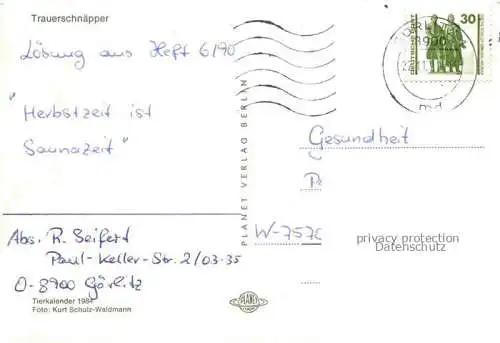 Trauerschnäpper
Lösung aus Heft 6/90
"Herbstzeit ist
Saunazeit"
Abs. R. Seifert
Paul-Keller-Str. 2/03-35
O-8900 Görlitz
Tierkalender 1984
Foto: Kurt Schulz-Waldmann
PLANET VERLAG BERLIN
PLANET
30
DEUTSCHE POST
Gesundheit
W-757
privacy protection
Datenschutz